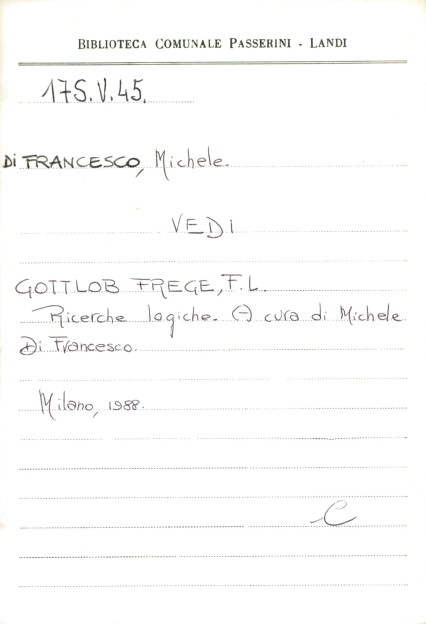 BIBLIOTECA COMUNALE PASSERINI - LANDI
17S.V.45.
Di FRANCESCO, Michele.
VEDI
GOTTLOB FREGE, F.L.
Ricerche logiche. A cura di Michele
Di Francesco.
Milano, 1988.
C